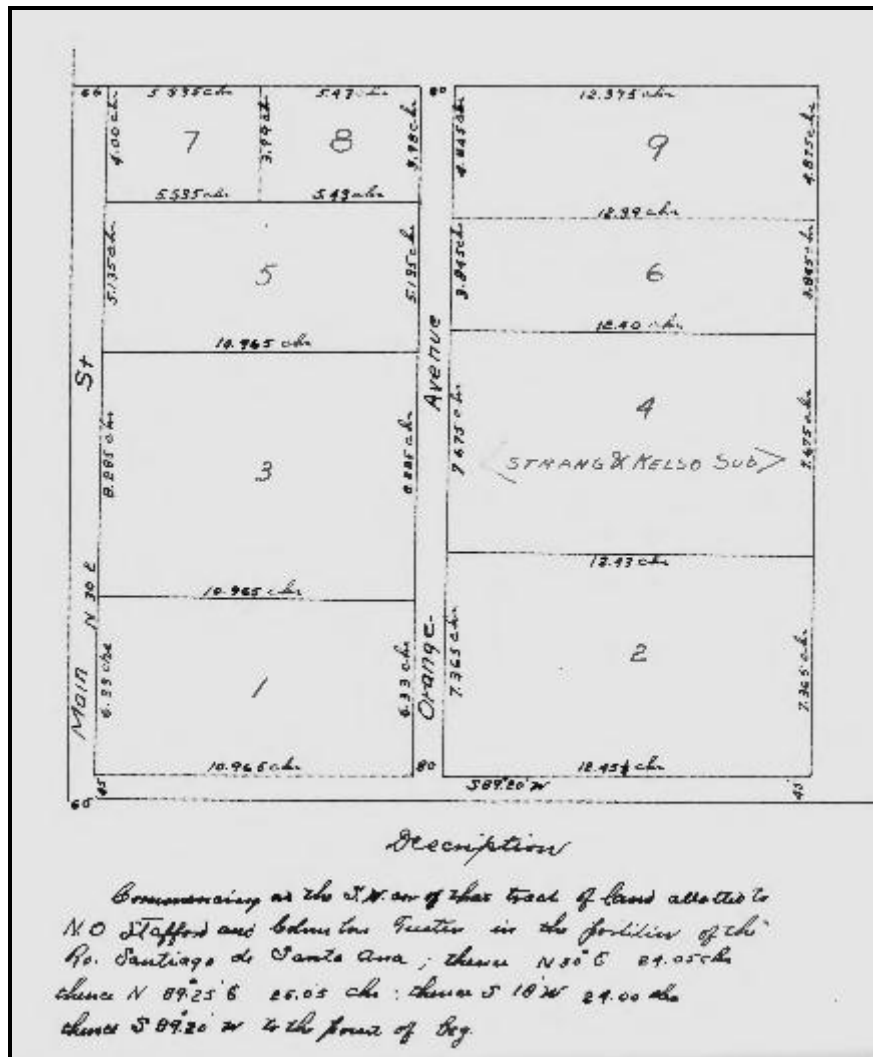 66 5.535 chs 5.47 chs 80 12.375 chs
4.00 chs 7 3.99 ch 8 3.98 chs 4.845 chs 9 4.875 chs
5.535 chs 5.43 chs 12.39 chs
5.135 chs 5 5.135 chs 3.845 chs 6 3.845 chs
10.965 chs 12.40 chs
Main N 30 E St
Orange Avenue
8.285 chs 3 8.285 chs 7.675 chs 4 7.675 chs
STRANG & KELSO SUB
10.965 chs 12.43 chs
6.33 chs 1 6.33 chs 7.365 chs 2 7.365 chs
10.965 chs 80 12.45½ chs
66 45 S 89°20' W 45
Description
Commencing at the S.W. cor of that tract of land allotted to
N.O Stafford and Columbus Tustin in the partition of the
Ro. Santiago de Santa Ana; thence N 30' E 24.05 chs
thence N 89°25' E 25.05 chs; thence S 18' W 24.00 chs
thence S 89°20' W to the point of beg.